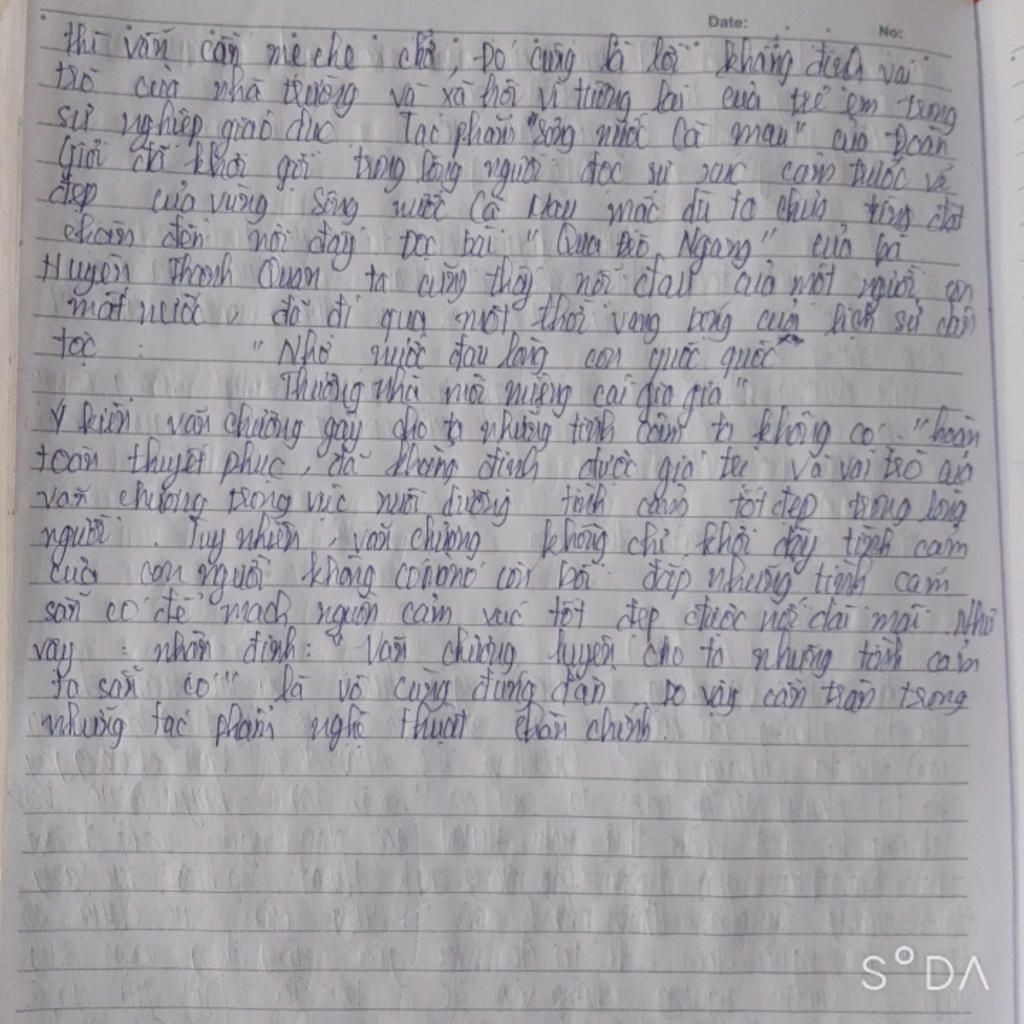 Date: No:
thì vẫn cần mẹ che chở, Đó cũng là lời khẳng định vai
trò của nhà trường và xã hội vì tương lai của trẻ em trong
sự nghiệp giáo dục Tác phẩm "Sông nước Cà Mau" của Đoàn
Giỏi đã khơi gợi trong lòng người đọc sự xúc cảm trước vẻ
đẹp của vùng sông nước Cà Mau mặc dù ta chưa từng đặt
chân đến nơi đây Đọc bài "Qua Đèo Ngang" của bà
Huyện Thanh Quan ta cũng thấy nỗi đau của một người con
mất nước, đã đi qua một thời vang bóng của lịch sử dân
tộc : "Nhớ nước đau lòng con quốc quốc
Thương nhà mỏi miệng cái gia gia"
Ý kiến văn chương gây cho ta những tình cảm ta không có "hoàn
toàn thuyết phục, đã khẳng định được giá trị và vai trò của
văn chương trong việc nuôi dưỡng tình cảm tốt đẹp trong lòng
người. Tuy nhiên, văn chương không chỉ khơi dậy tình cảm
của con người không có nó còn bồi đắp những tình cảm
sẵn có để mạch nguồn cảm xúc tốt đẹp được nối dài mãi. Như
vậy : nhận định: "Văn chương luyện cho ta những tình cảm
ta sẵn có" là vô cùng đúng đắn Do vậy cần trân trọng
những tác phẩm nghệ thuật chân chính.
S°DA